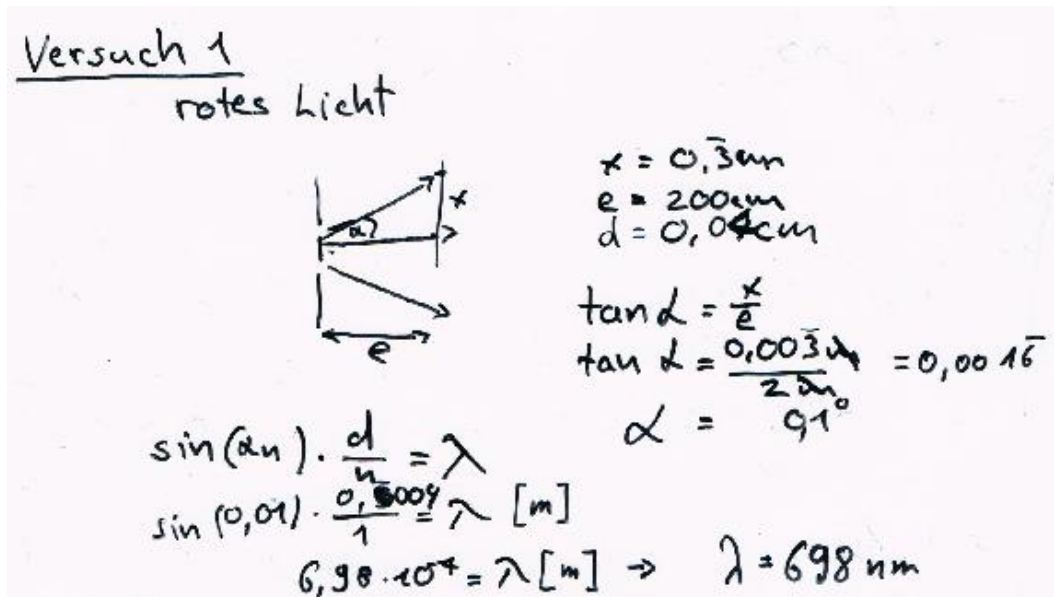 Versuch 1
rotes Licht
x = 0,3̅cm
e = 200cm
d = 0,04cm
α
x
e
tan α = x/e
tan α = 0,003̅m/2m = 0,0016̅
α = 0,1°
sin(αn) · d/n = λ
sin(0,01) · 0,0004/1 = λ [m]
6,98·10⁻⁷ = λ [m] → λ = 698 nm